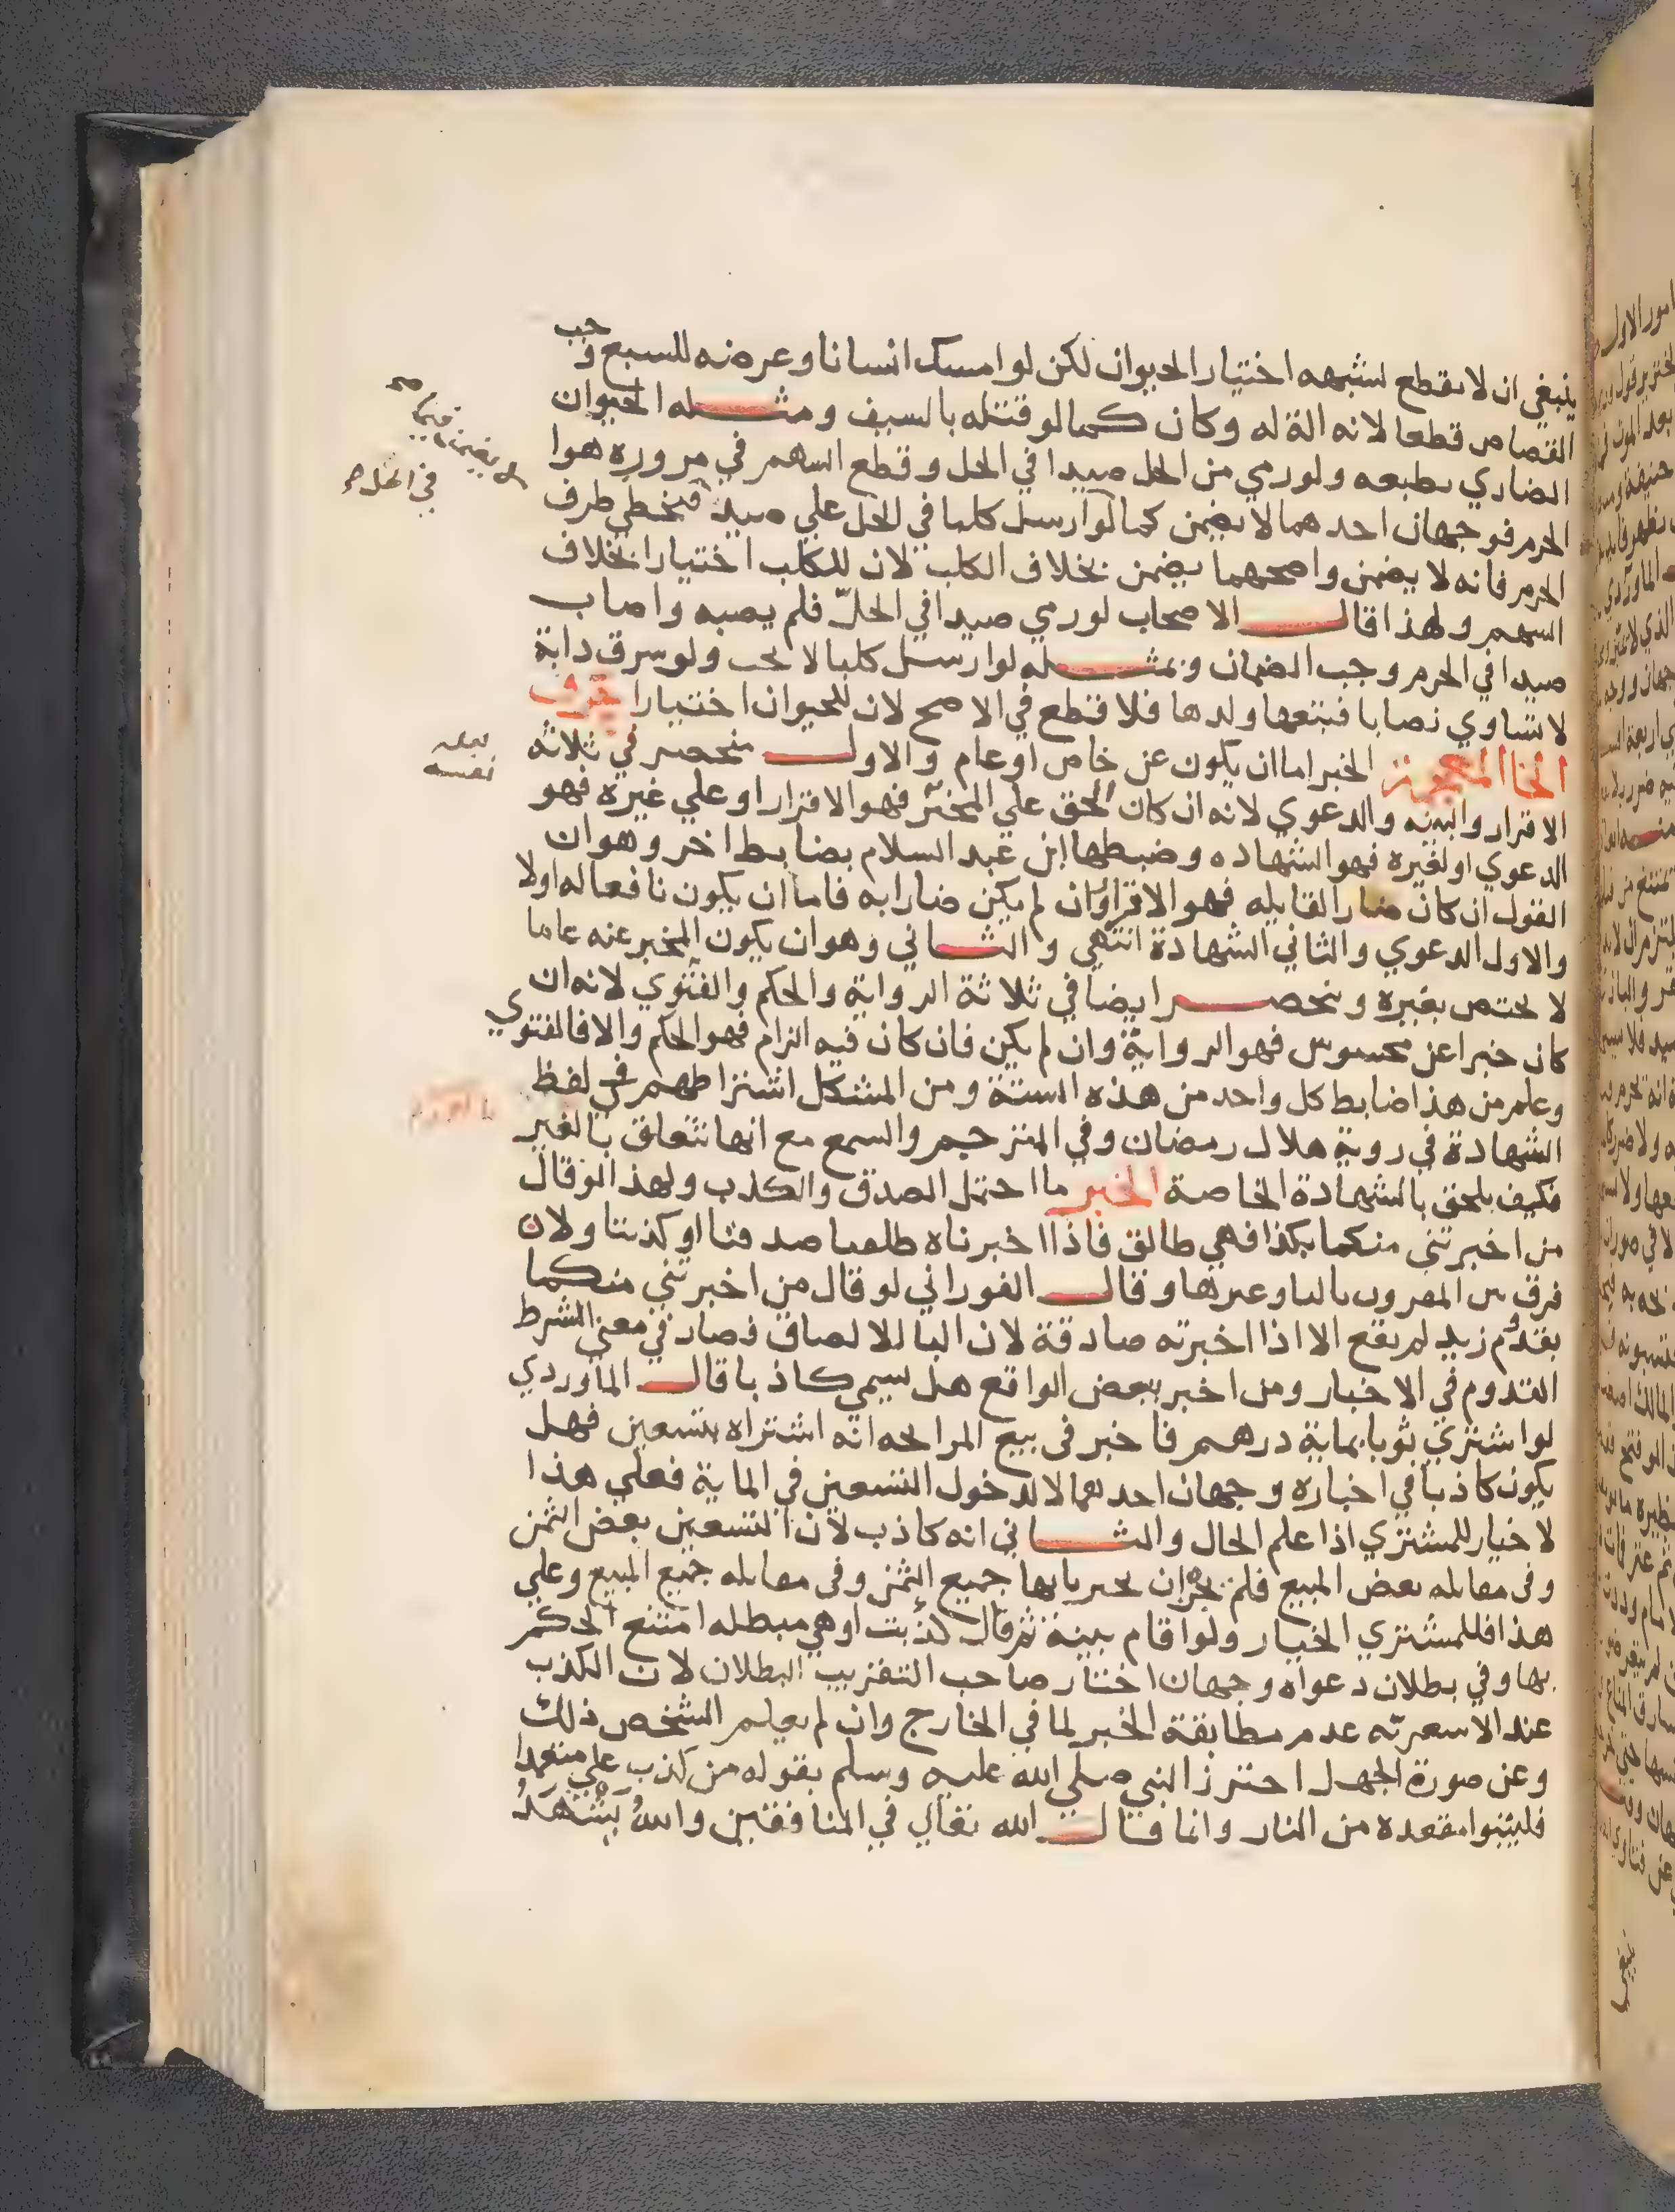 ينبغي ان لا يقطع لشبهه اختيار الحيوان لكن لو امسك انسانا وعرضه للسبع وجب
القصاص قطعا لانه الة له وكان كما لو قتله بالسيف ومثله الحيوان
الضاري بطبعه ولو رمي من الحل صيدا في الحل وقطع السهم في مروره هوا
الحرم فوجهان احدهما لا يضمن كما لو ارسل كلبا في الحل علي صيد فتخطي طرف
الحرم فانه لا يضمن واصحهما يضمن بخلاف الكلب لان للكلب اختيارا بخلاف
السهم ولهذا قال الاصحاب لو رمي صيدا في الحل فلم يصبه واصاب
صيدا في الحرم وجب الضمان وبمثله لو ارسل كلبا لا يجب ولو سرق دابة
لا تساوي نصابا فتبعها ولدها فلا قطع في الاصح لان للحيوان اختيارا حرف
الخا المعجمة الخبر اما ان يكون عن خاص او عام والاول منحصر في ثلاثه
الاقرار والبينه والدعوي لانه ان كان الحق علي المخبر فهو الاقرار او علي غيره فهو
الدعوي او لغيره فهو الشهاده وضبطها ابن عبد السلام بضابط اخر وهو ان
القول ان كان ضارا لقايله فهو الاقرار وان لم يكن ضارا به فاما ان يكون نافعا له اولا
والاول الدعوي والثاني الشهادة انتهي والثاني وهو ان يكون المخبر عنه عاما
لا يختص بغيره وينحصر ايضا في ثلاثة الرواية والحكم والفتوي لانه ان
كان خبرا عن محسوس فهو الرواية وان لم يكن فان كان فيه الزام فهو الحكم والا فالفتوي
وعلم من هذا ضابط كل واحد من هذه الستة ومن المشكل اشتراطهم في لفظ
الشهادة في روية هلال رمضان وفي المترجم والسمع مع انها تتعلق بالغير
فكيف يلحق بالشهادة الخاصة الخبر ما احتمل الصدق والكذب ولهذا لو قال
من اخبرتني منكما بكذا فهي طالق فاذا اخبرتاه طلقتا صدقتا او كذبتا ولان
فرق بين المقرون بالبا وغيرها وقال الفوراني لو قال من اخبرتني منكما
بقدوم زيد لم يقع الا اذا اخبرته صادقة لان البا للالصاق فصار في معني الشرط
القدوم في الاخبار ومن اخبر ببعض الواقع هل يسمي كاذبا قال الماوردي
لو اشتري ثوبا بماية درهم فاخبر في بيع المرابحه انه اشتراه بتسعين فهل
يكون كاذبا في اخباره وجهان احدهما لا لدخول التسعين في الماية فعلي هذا
لا خيار للمشتري اذا علم الحال والثاني انه كاذب لان التسعين بعض الثمن
وفي مقابله بعض المبيع فلم يجز ان يخبر بانها جميع الثمن وفي مقابله جميع المبيع وعلي
هذا فللمشتري الخيار ولو اقام بينة ثم قال كذبت او هي مبطله امتنع الحكم
بها وفي بطلان دعواه وجهان اختار صاحب التقريب البطلان لان الكذب
عند الاشعريه عدم مطابقة الخبر لما في الخارج وان لم يعلم الشخص ذلك
وعن صورة الجهل احترز النبي صلي الله عليه وسلم بقوله من كذب علي متعمدا
فليتبوا مقعده من النار وانما قال الله تعالي في المنافقين والله يشهد